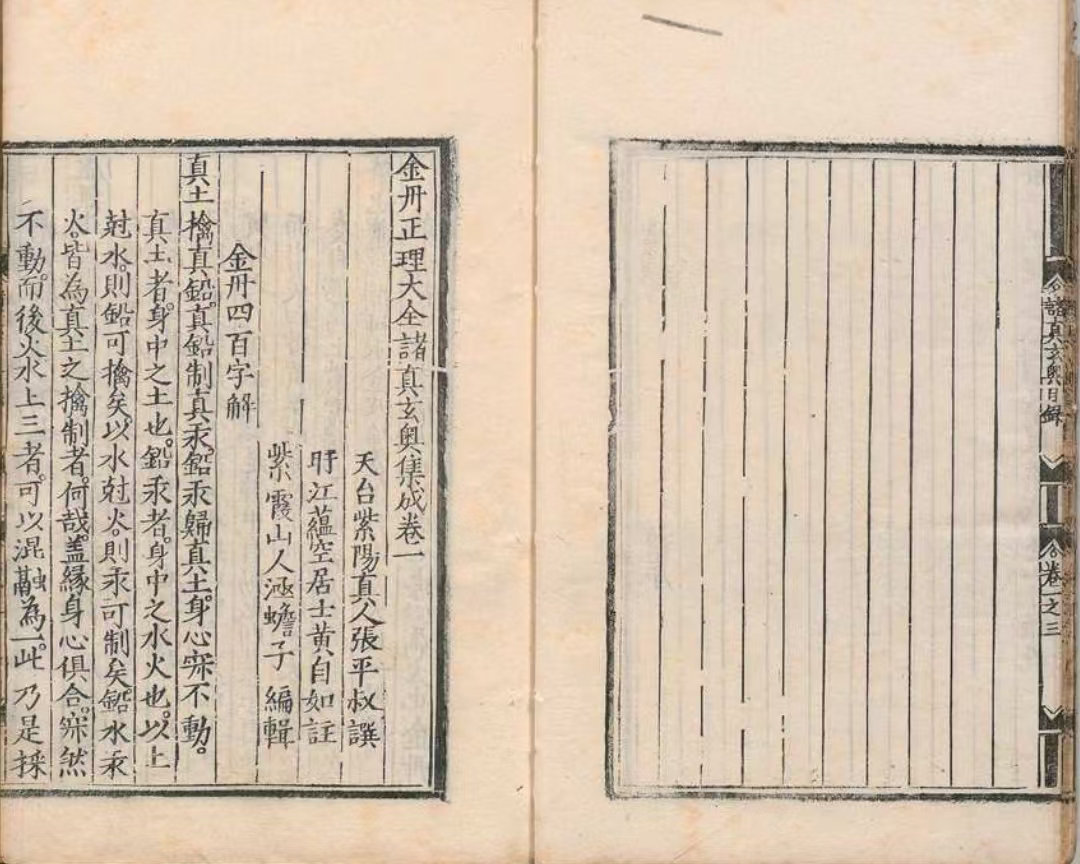 諸真玄奧目錄
卷一之三
金丹正理大全諸真玄奧集成卷一
天台紫陽真人張平叔譔
盱江蘊空居士黃自如註
紫霞山人涵蟾子編輯
金丹四百字解
真土擒真鉛。真鉛制真汞。鉛汞歸真土。身心寂不動。
真土者。身中之土也。鉛汞者。身中之水火也。以土
尅水。則鉛可擒矣。以水尅火。則汞可制矣。鉛水汞
火。皆為真土之擒制者。何哉。蓋緣身心俱合。寂然
不動。而後火水土三者。可以混融為一。此乃是採